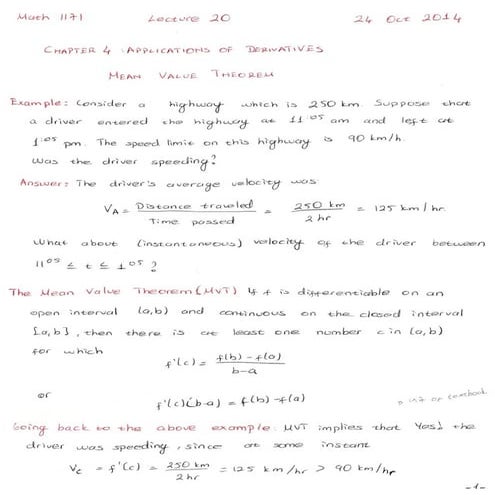 Math 1171 Lecture 20 24 Oct 2014
CHAPTER 4: APPLICATIONS OF DERIVATIVES
MEAN VALUE THEOREM
Example: Consider a highway which is 250 km. Suppose that
a driver entered the highway at 11:05 am and left at
1:05 pm. The speed limit on this highway is 90 km/h.
Was the driver speeding?
Answer: The driver's average velocity was
V_A = Distance traveled / Time passed = 250 km / 2 hr = 125 km/hr
What about (instantaneous) velocity of the driver between
11:05 ≤ t ≤ 1:05 ?
The Mean Value Theorem (MVT) If f is differentiable on an
open interval (a,b) and continuous on the closed interval
[a,b], then there is at least one number c in (a,b)
for which
f'(c) = f(b) - f(a) / b-a
or
f'(c)(b-a) = f(b) - f(a)
of textbook
Going back to the above example: MVT implies that Yes! the
driver was speeding, since at some instant
V_c = f'(c) = 250 km / 2 hr = 125 km/hr > 90 km/hr
-1-